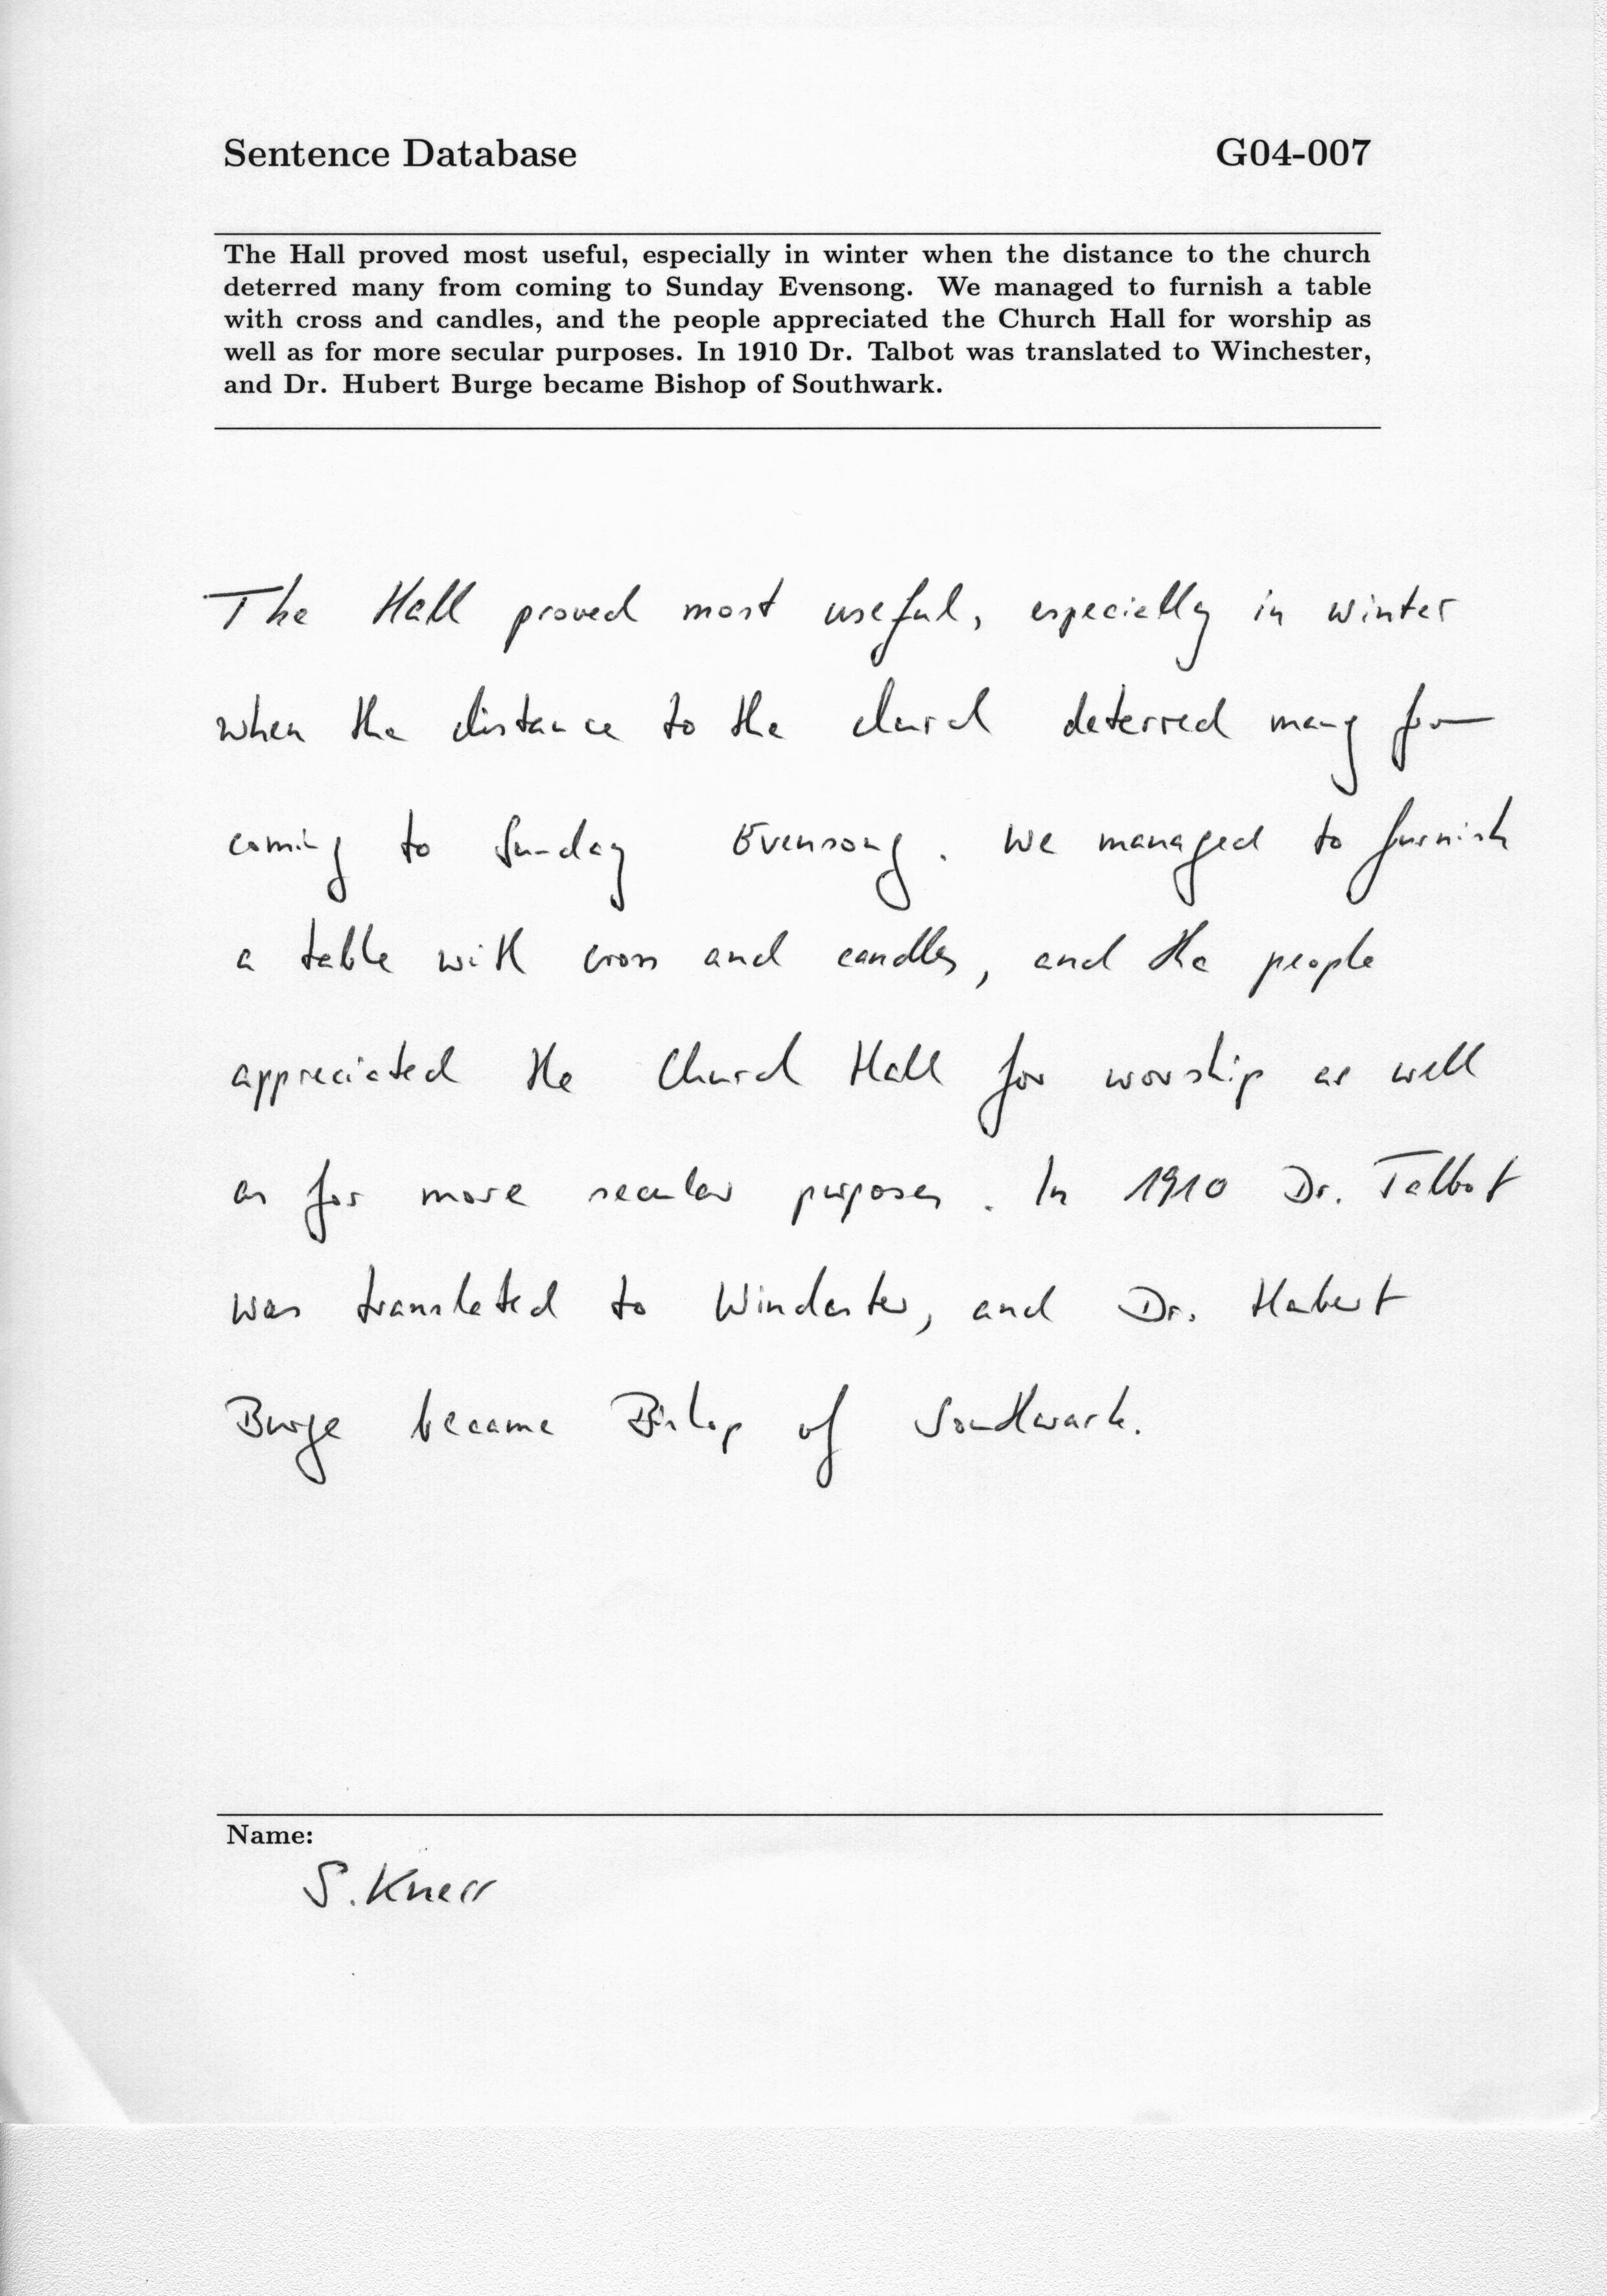 Sentence Database G04-007
The Hall proved most useful, especially in winter when the distance to the church
deterred many from coming to Sunday Evensong. We managed to furnish a table
with cross and candles, and the people appreciated the Church Hall for worship as
well as for more secular purposes. In 1910 Dr. Talbot was translated to Winchester,
and Dr. Hubert Burge became Bishop of Southwark.
The Hall proved most useful, especially in winter
when the distance to the church deterred many from
coming to Sunday Evensong. We managed to furnish
a table with cross and candles, and the people
appreciated the Church Hall for worship as well
as for more secular purposes. In 1910 Dr. Talbot
was translated to Winchester, and Dr. Hubert
Burge became Bishop of Southwark.
Name:
S. Knerr